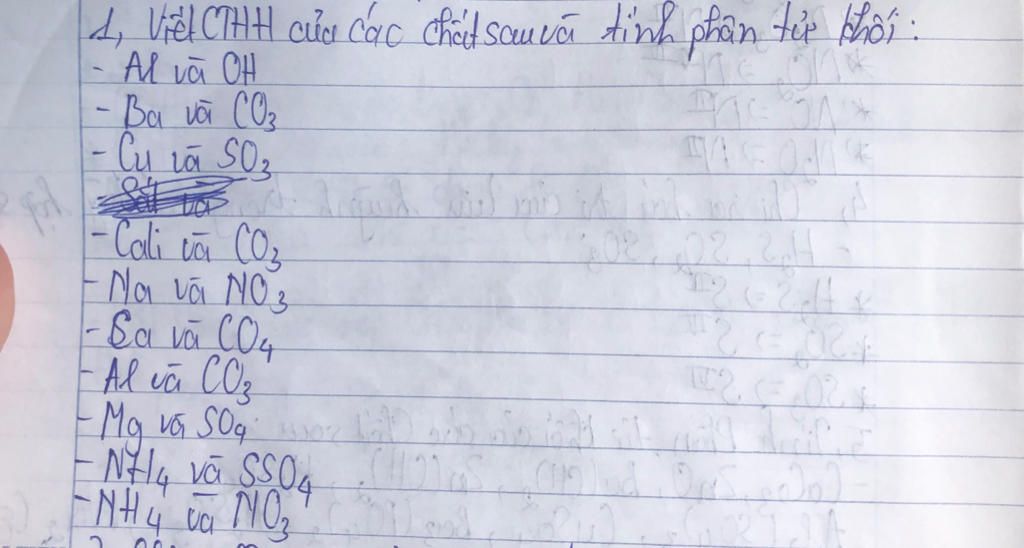 1, Viết CTHH của các chất sau và tính phân tử khối:
- Al và OH
- Ba và CO3
- Cu và SO3
- Cali và CO3
- Na và NO3
- Ba và CO4
- Al và CO3
- Mg và SO4
- NH4 và SSO4
- NH4 và NO3